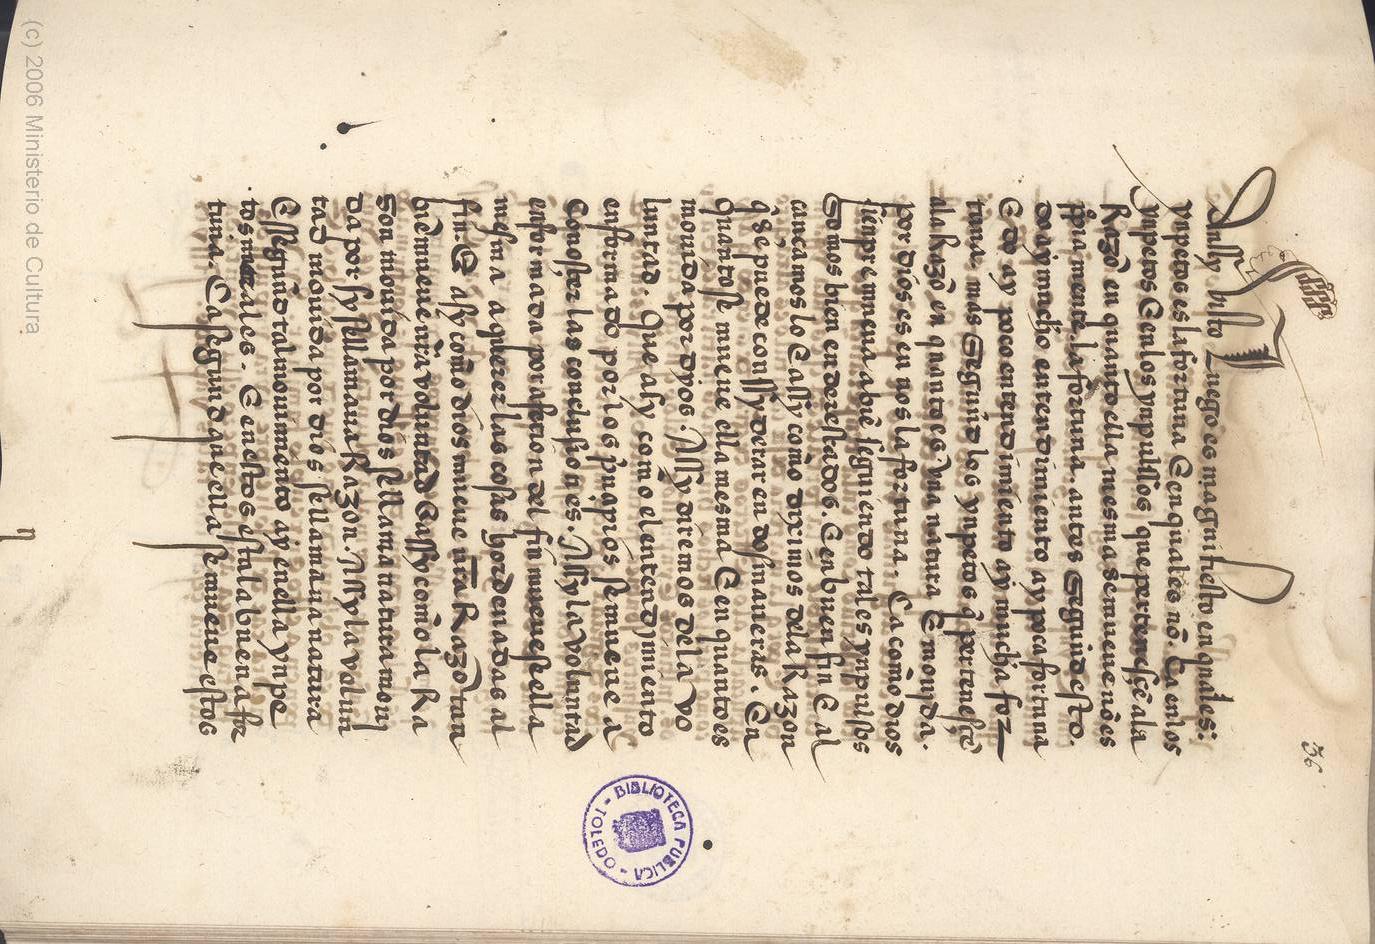 36
Ansy visto Luego es magnifiesto en quales:
ynpetos es la fortuna E en quales nõ. Ca en los
ynpetos E en los ynpulsos que pertenesçe a la
Razõ en quanto ella mesma se mueue nõ es
ppia mente la fortuna. antes Segund esto.
do ay mucho entendimiento ay poca fortuna
E do ay poco entendimiento ay mucha for
tuna. mas Segund los ynpetos q̃ pertenesçẽ
ala Razõ en quanto es vna natura E mouida.
por dios es en nos la fortuna. Ca comõ dios
sienpre mueua a biẽ seguiendo tales ynpulsos
Somos bien enderesçados. E en buen fin E al
cançamos lo Ca asy comõ diximos dela Razon
q̃ se puede consyderar en dos maneras. En
quanto se mueue ella mesma E en quanto es
mouida por dyos. Asy diremos dela vo
luntad. Que asy como el entendymiento
enformado por los prinçipios se mueue a
Conosçer las conclusiones. Asy la voluntad
enformada por afection del fin mueue se ella
mesma a querer las cosas hordenadas al
fin E asy comõ dios mueue nr̃a Razõ tan
biẽ mueue nr̃a voluntad E asy comõ la Ra
son mouida por dios se llama natura mouj
da por sy se llamaua Razon. Asy la volun
tad mouida por dios se llamaua natura
E Segund tal mouimiento ay en ella ynpe
tos tales. E en estos esta la buena for
tuna. Ca Segund que ella se mueue estos
BIBLIOTECA PUBLICA - TOLEDO -
(c) 2006 Ministerio de Cultura